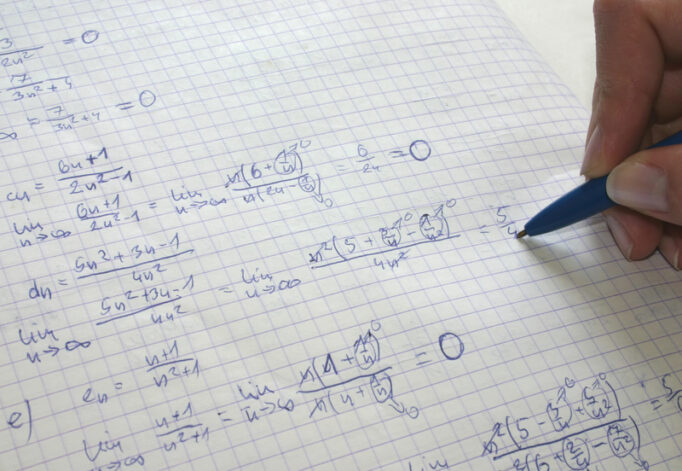 3/2n² = 0
7/3n²+4
∞ = 7/3n²+4 = 0
cn = 6n+1/2n²-1
lim n→∞ 6n+1/2n²-1 = lim n→∞ n(6+(1/n)→0)/n(2n-(1/n)→0) = 6/2n = 0
dn = 5n²+3n-1/4n²
lim n→∞ 5n²+3n-1/4n² = lim n→∞ n²(5+(3/n)→0-(1/n²)→0)/4n² = 5/4
en = n+1/n²+1
e) lim n→∞ n+1/n²+1 = lim n→∞ n(1+(1/n)→0)/n(n+(1/n)→0) = 0
lim n²(5-(2/n)→0+(5/n²)→0)